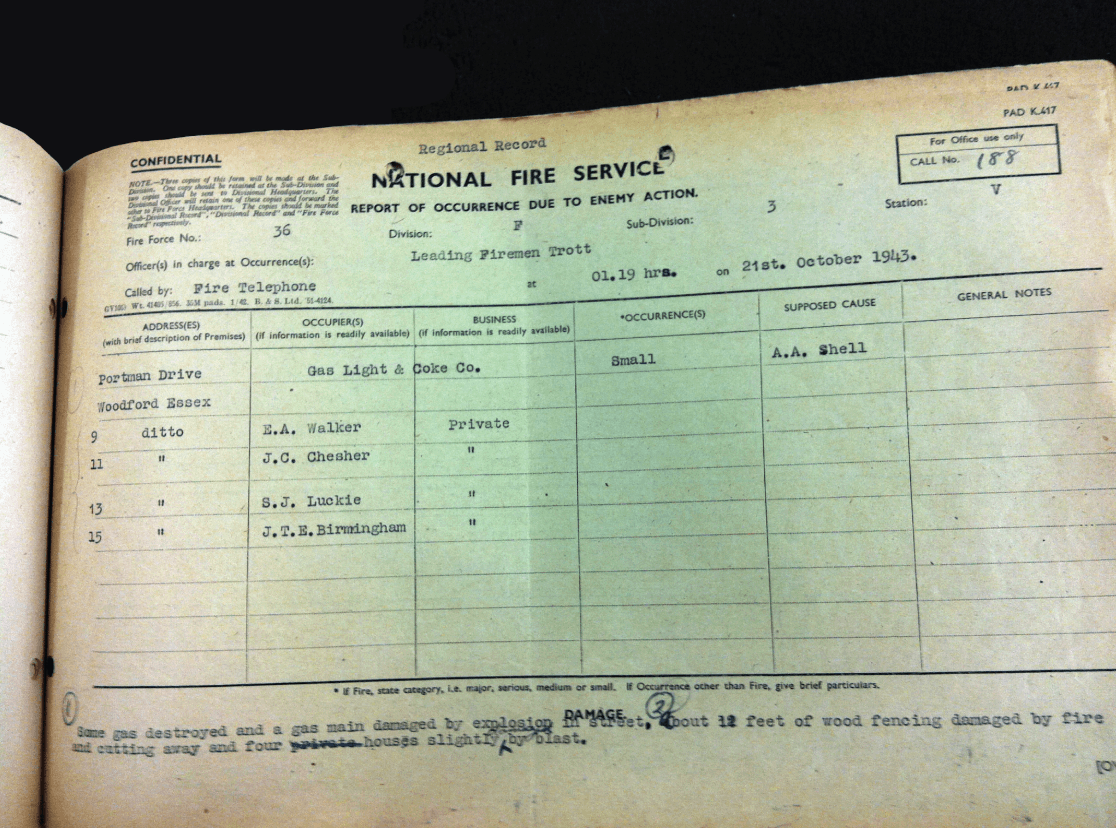 PAD K.417
PAD K.417
Regional Record
CONFIDENTIAL
For Office use only
CALL No. 188
NOTE.—Three copies of this form will be made at the Sub-
Division. One copy should be retained at the Sub-Division and
two copies should be sent to Divisional Headquarters. The
Divisional Officer will retain one of these copies and forward the
other to Fire Force Headquarters. The copies should be marked
"Sub-Divisional Record", "Divisional Record" and "Fire Force
Record" respectively.
NATIONAL FIRE SERVICE
REPORT OF OCCURRENCE DUE TO ENEMY ACTION.
Fire Force No.: 36 Division: F Sub-Division: 3 Station: V
Officer(s) in charge at Occurrence(s): Leading Firemen Trott
Called by: Fire Telephone at 01.19 hrs. on 21st. October 1943.
ADDRESS(ES) (with brief description of Premises) OCCUPIER(S) (if information is readily available) BUSINESS (if information is readily available) *OCCURRENCE(S) SUPPOSED CAUSE GENERAL NOTES
Portman Drive Gas Light & Coke Co. Small A.A. Shell
Woodford Essex
9 ditto E.A. Walker Private
11 " J.C. Chesher "
13 " S.J. Luckie "
15 " J.T.E.Birmingham "
* If Fire, state category, i.e. major, serious, medium or small. If Occurrence other than Fire, give brief particulars.
DAMAGE
1 2
Some gas destroyed and a gas main damaged by explosion in street. About 12 feet of wood fencing damaged by fire
and cutting away and four private houses slightly by blast.